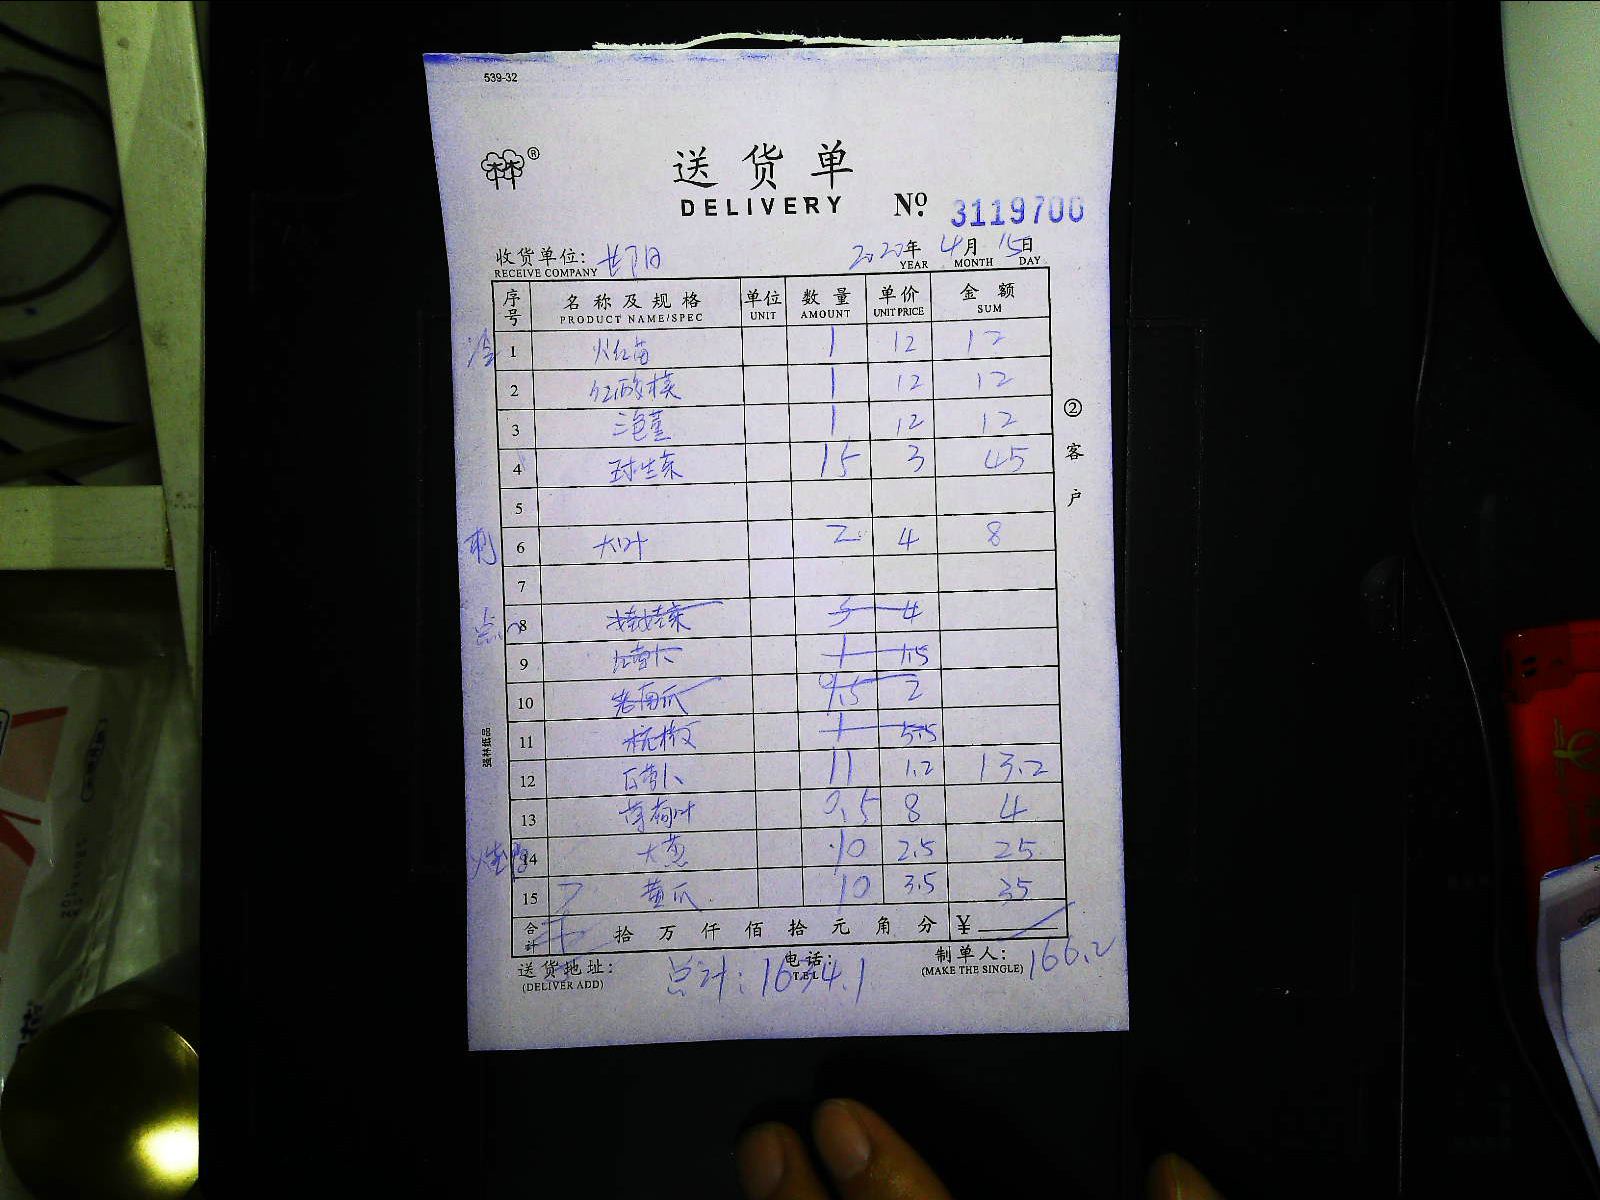 539-32
送货单
DELIVERY № 3119700
收货单位: 2020年 4月 15日
RECEIVE COMPANY YEAR MONTH DAY
序号 名称及规格 单位 数量 单价 金额
PRODUCT NAME/SPEC UNIT AMOUNT UNIT PRICE SUM
1 火红苗 1 12 12
2 红酸模 1 12 12
3 三色堇 1 12 12
4 球生菜 15 3 45
5
刺 6 大叶 2 4 8
7
点心 8 娃娃菜 5 4
9 红萝卜 1 1.5
10 老南瓜 9.5 2
11 杭椒 1 5.5
12 白萝卜 11 1.2 13.2
13 薄荷叶 0.5 8 4
14 大葱 10 2.5 25
15 黄瓜 10 3.5 35
合计 拾万仟佰拾元角分 ¥
送货地址: 电话: 制单人: 166.2
(DELIVER ADD) TEL (MAKE THE SINGLE)
总计: 1634.1
②客户
强林纸品